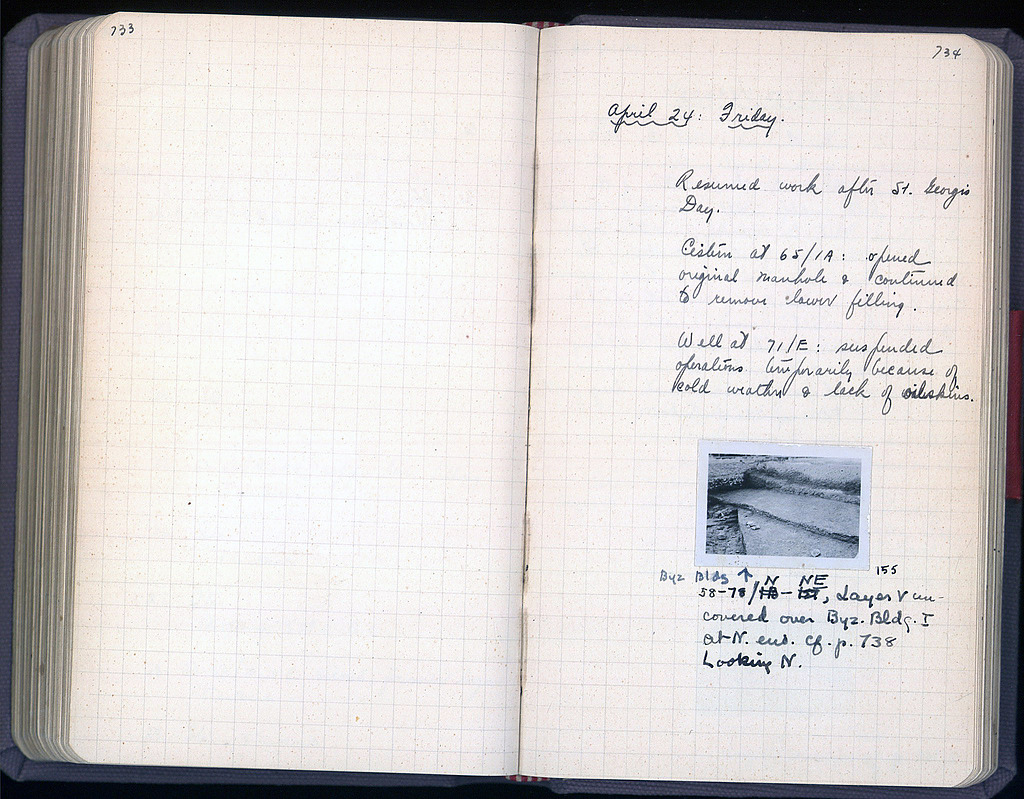 733
734
April 24: Friday.
Resumed work after St. Georgis
Day.
Cistern at 65/1A: opened
original manhole & continued
to remove lower filling.
Well at 71/E: suspended
operations temporarily because of
cold weather & lack of oilskins.
155
Byz Bldg ↑ N NE
58-78/ - , Layer V un-
covered over Byz. Bldg. I
at N. end. cf. p. 738
Looking N.